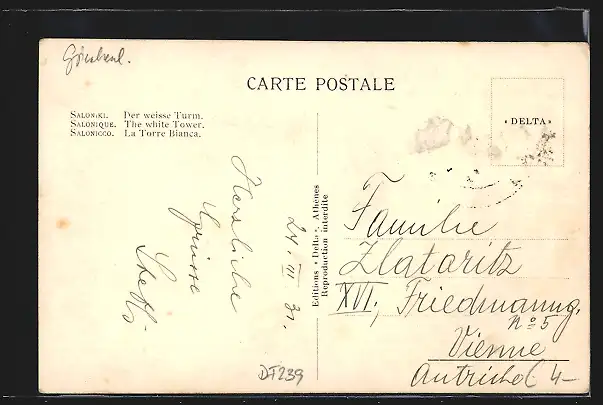 CARTE POSTALE
SALONIKI. Der weisse Turm.
SALONIQUE. The white Tower.
SALONICCO. La Torre Bianca.
• DELTA •
Editions • Delta • Athènes
Reproduction interdite
Herzliche
Grüsse
Steffo
24. III 31.
Familie
Zlataritz
XVI, Friedmanng.
No 5
Vienne
Autriche
4-
DT239